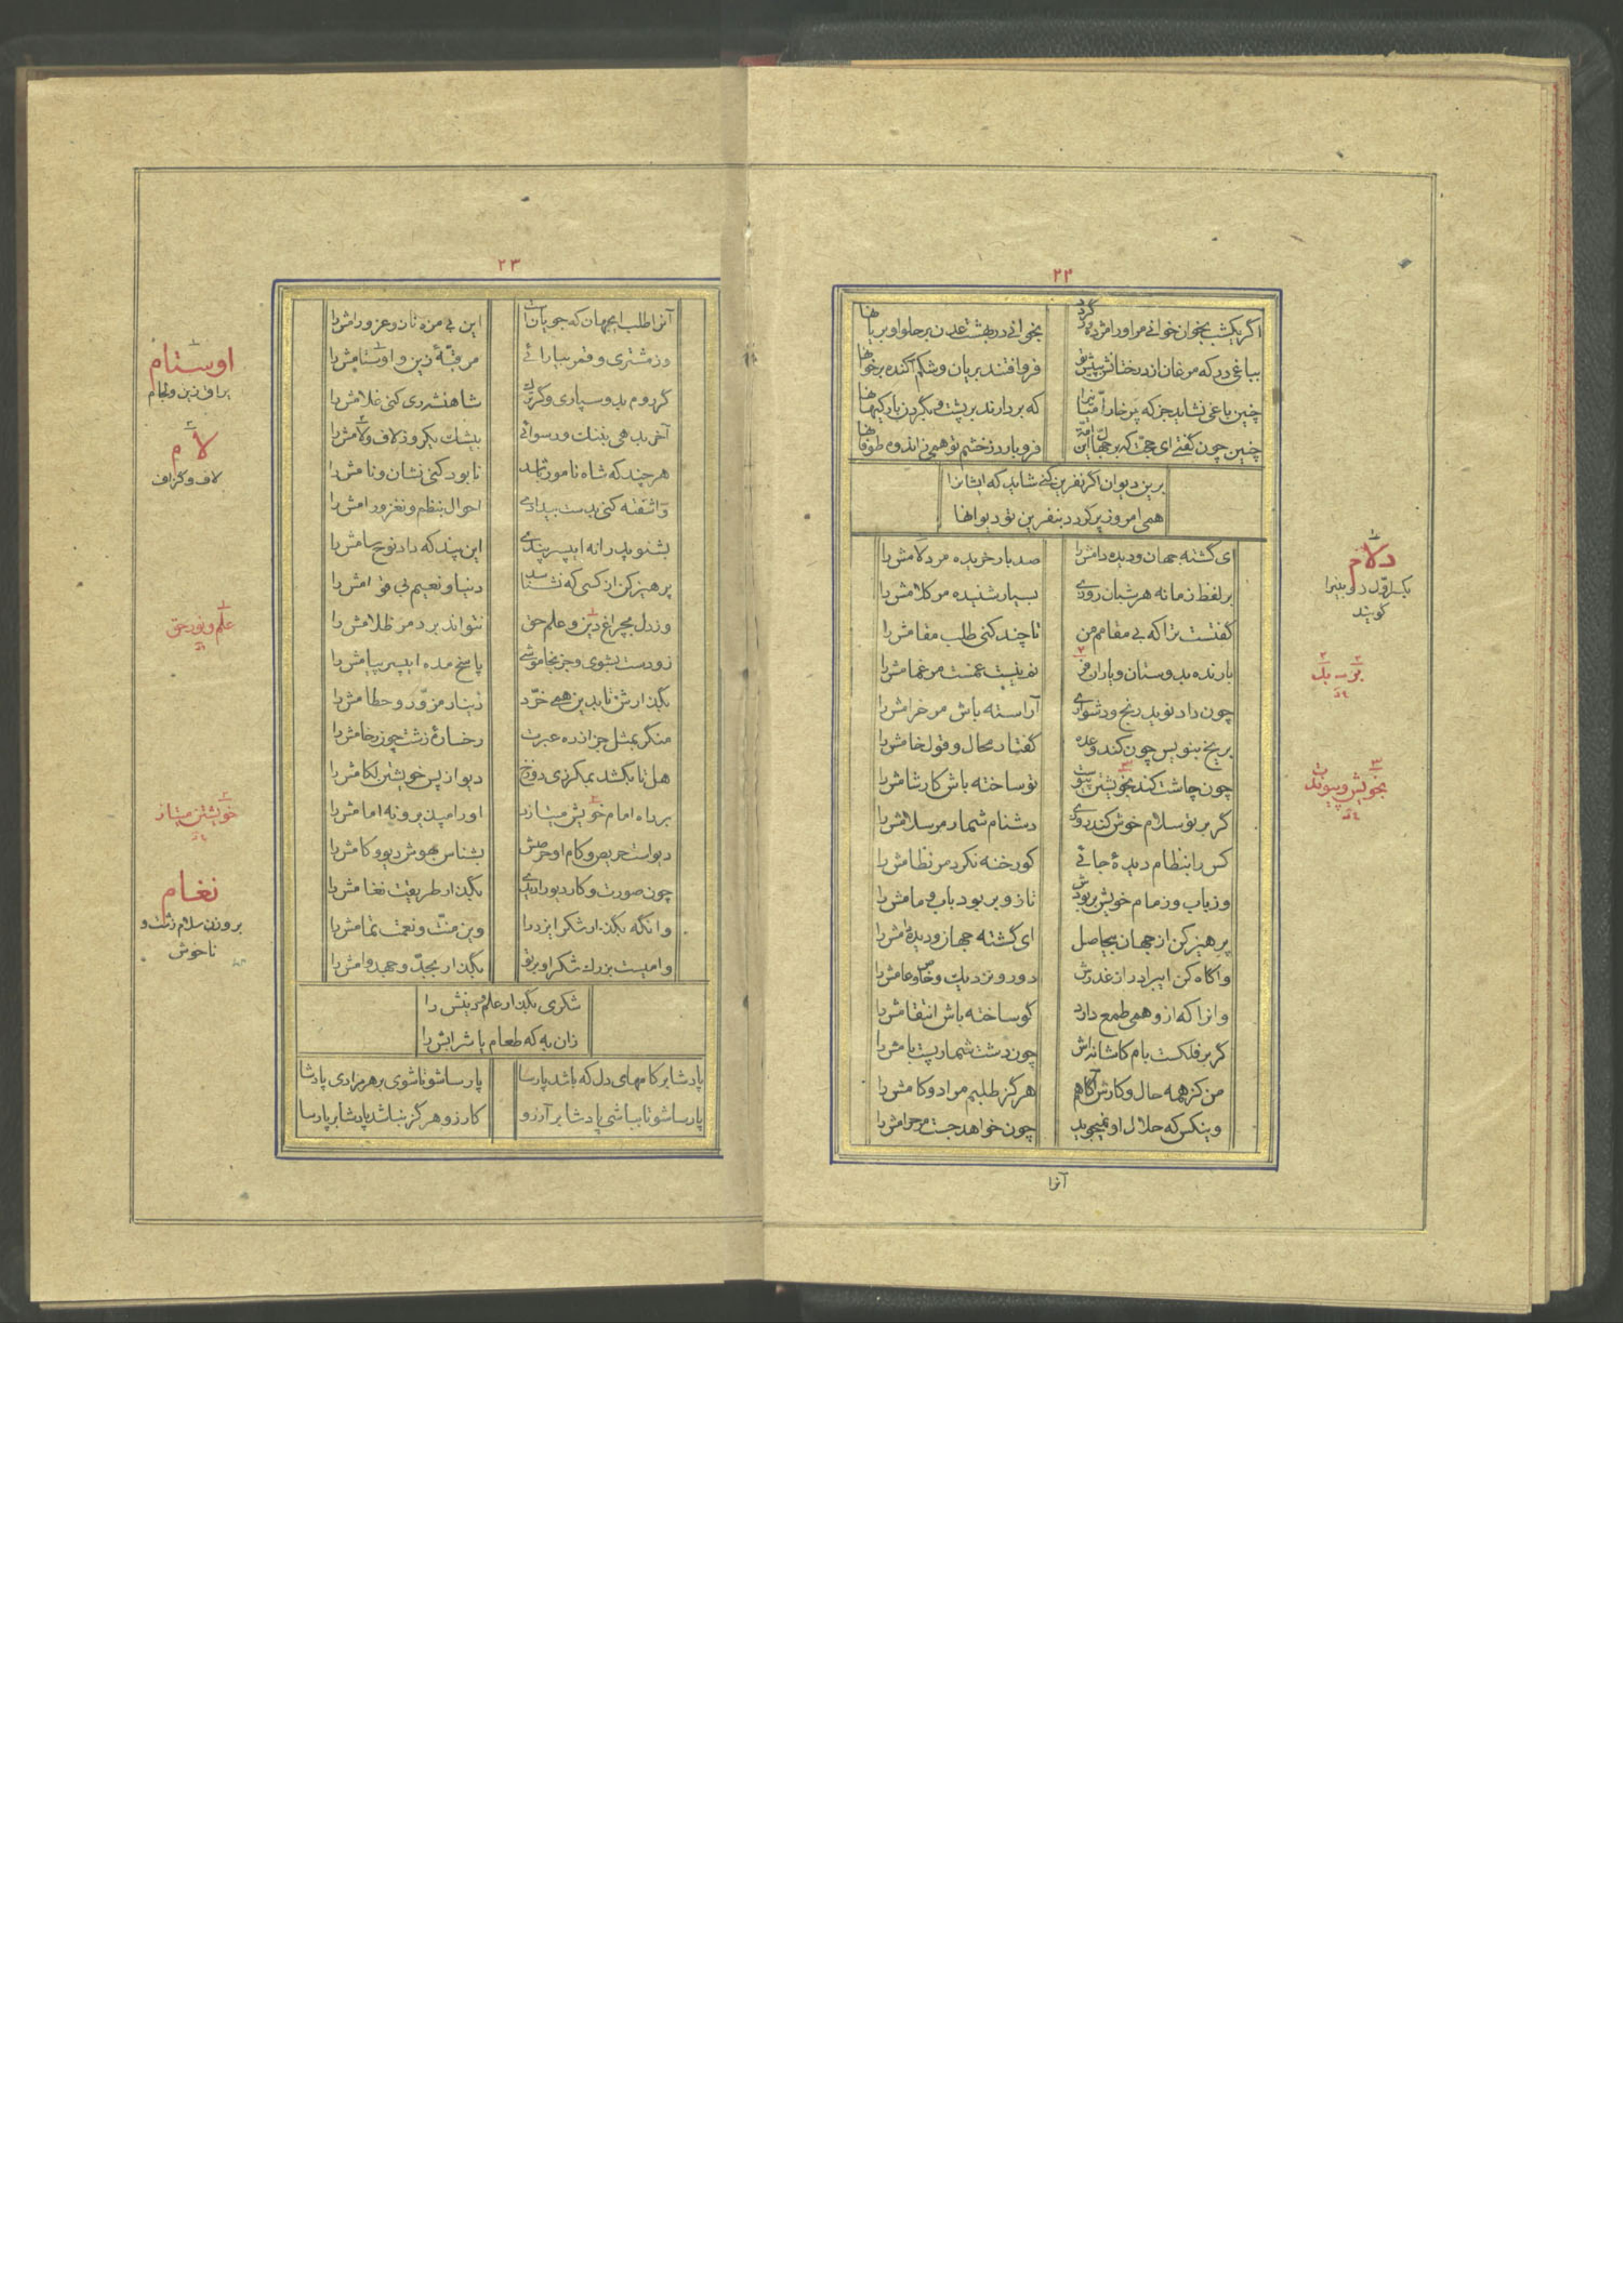 ۲۲
اگر یکشب بخوان خوانی مر اورا مژده‌بر گردد بخوانی در بهشت عدن بر حلوا و بریانها
بباغی در که مرغان از درختانش به پیش تو فرو افتند بریان و شکم آکنده بر خوانها
چنین باغی نشاید جز که پر خاران امتیا را که بردارند بر پشت و بگردن بار کپانها
چنین چون گفتی ای حجت که بر جهال این امت فرو بارد ز خشم تو همی زاندوه طوفانها
برین دیوان اگر نفرین کنی شاید که ایشانرا
همی امروز پر گردد بنفرین تو دیوانها
ای گشته جهان و دیده دامش را صد بار خریده مر دلامش را
بر لفظ زمانه هر شبان روزی بسیار شنیده مر کلامش را
گفتست ترا که بی مقامم من تا چند کنی طلب مقامش را
بارنده بدوستان و یاران بر نم نیست غمست مر غمامش را
چون داد نوید رنج و دشواری آراسته باش مر خرامش را
بر یخ بنویس چون کند وعده گفتار محال و قول خامش را
چون چاشت کند بخویشتن پیوست تو ساخته باش کار شامش را
گر بر تو سلام خوش کند روزی دشنام شمار مر سلامش را
کس را بنظام دیدهٔ جائی کو رخنه نکرد مر نظامش را
وز باب و ز مام خویش بربودش تا زو بربود باب و مامش را
پرهیز کن از جهان بیحاصل ای گشته جهان و دیدهٔ دامش را
و آگاه کن ای برادر از غدرش دور و نزدیک و خاص و عامش را
وانرا که ازو همی طمع دارد گو ساخته باش انتقامش را
گر بر فلکست بام کاشانه‌اش چون دشت شمار پست بامش را
من کز همه حال و کارش آگاهم هرگز طلبم مراد و کامش را
وینکس که حلال او نمیجوید چون خواهد جست مر حرامش را
آنرا
دلام
یکسر اول دو بینرا
گویند
بر بد
بخویش و پیوندت
۲۳
آنرا طلب ای جهان که جویانت این بی مزه نان و عز و رامش را
وز مشتری و قمر بیارائی مر قبّهٔ زین و اوستامش را
گر روم بدو سپاری و گر ترک شاهنشه ری کنی غلامش را
آخر بدهی بننگ و رسوائی بیشک یکروز لاف و لامش را
هر چند که شاه نامور باشد نابود کنی نشان و نامش را
وآشفته کنی بدست بیدادی احوال بنظم و نغز و رامش را
بشنو پدرانه ای پسر پندی این پند که داد نوح سامش را
پرهیز کن از کسی که نشناسد دنیا و نعیم بی قوامش را
وز دل بچراغ دین و علم حق نتواند برد مر ظلامش را
زو دست بشوی و جز بخاموشی پاسخ مده ای پسر پیامش را
بگذارش تا بدین همی خرّد دینار مزوّر و حطامش را
منگر بمثل جز از ره عبرت رخسارهٔ زشت چون رخامش را
هل تا بکشد بمکر زی دوزخ دیو از پس خویشتن لکامش را
بر راه امام خویش میتازد اورا میذیر و نه امامش را
دیوست حریص و کام او حرصش بشناس بهوش دیو و کامش را
چون صورت و کار دیو را دیدی بگذار طریقت نغامش را
وانگه بگذار شکر ایزد را وین منّت و نعمت تمامش را
وامیست بزرگ شکر او بر تو بگذار بجدّ و جهد وامش را
شکری بگذار علم و دینش را
زان به که طعام یا شرابش را
پادشا بر کامهای دل که باشد پارسا پارسا شو تا شوی بر هر مرادی پادشا
پارسا شو تا بباشی پادشا بر آرزو کارزو هرگز نباشد پادشا بر پارسا
اوستام
یراق زین و لجام
لام
لاف و گزاف
علم و نور حق
خویشتن میتازد
نغام
بر وزن سلام زشت و
ناخوش